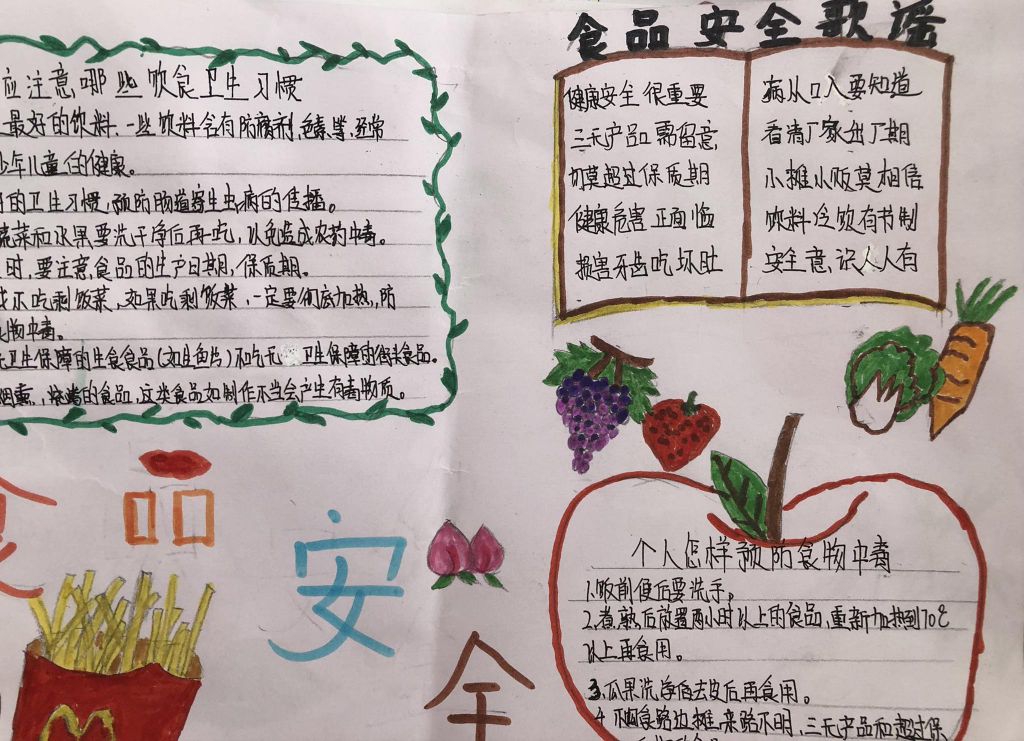 应注意哪些饮食卫生习惯
最好的饮料.一些饮料含有防腐剂,色素,等,经常
少年儿童的健康。
的卫生习惯,预防肠道寄生虫病的传播。
蔬菜和水果要洗干净后再吃,以免造成农药中毒。
时,要注意食品的生产日期,保质期。
或不吃剩饭菜,如果吃剩饭菜,一定要彻底加热,防
食物中毒。
无卫生保障的生食食品(如生鱼片)和吃无卫生保障的街头食品。
烟熏,烧烤的食品,这类食品如制作不当会产生有毒物质。
食品安全歌谣
健康安全很重要
三无产品需留意
切莫超过保质期
健康危害正面临
损害牙齿吃坏肚
病从口入要知道
看清厂家出厂期
小摊小贩莫相信
饮料冷饮有节制
安全意识人人有
食品
安
全
个人怎样预防食物中毒
1.饭前便后要洗手。
2.煮熟后放置两小时以上的食品,重新加热到70℃
以上再食用。
3.瓜果洗净后去皮后再食用。
4.不购食路边摊,来路不明,三无产品和超过保